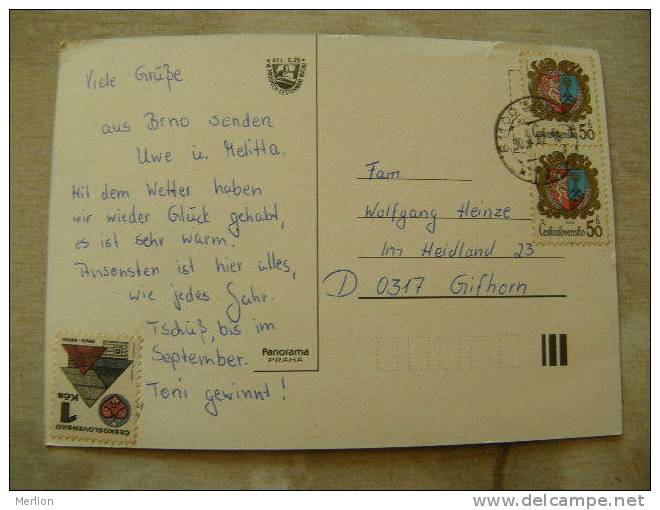 Viele Grüße
aus Brno senden
Uwe u. Melitta.
Mit dem Wetter haben
wir wieder Glück gehabt,
es ist sehr warm.
Ansonsten ist hier alles,
wie jedes Jahr.
Tschüß, bis im
September.
Toni gewinnt!
Panorama
PRAHA
Fam
Wolfgang Heinze
Im Heidland 23
D 0317 Gifhorn
Československo 50
Československo 50
1 Kčs
ČESKOSLOVENSKO
Merlion
www.delcampe.net